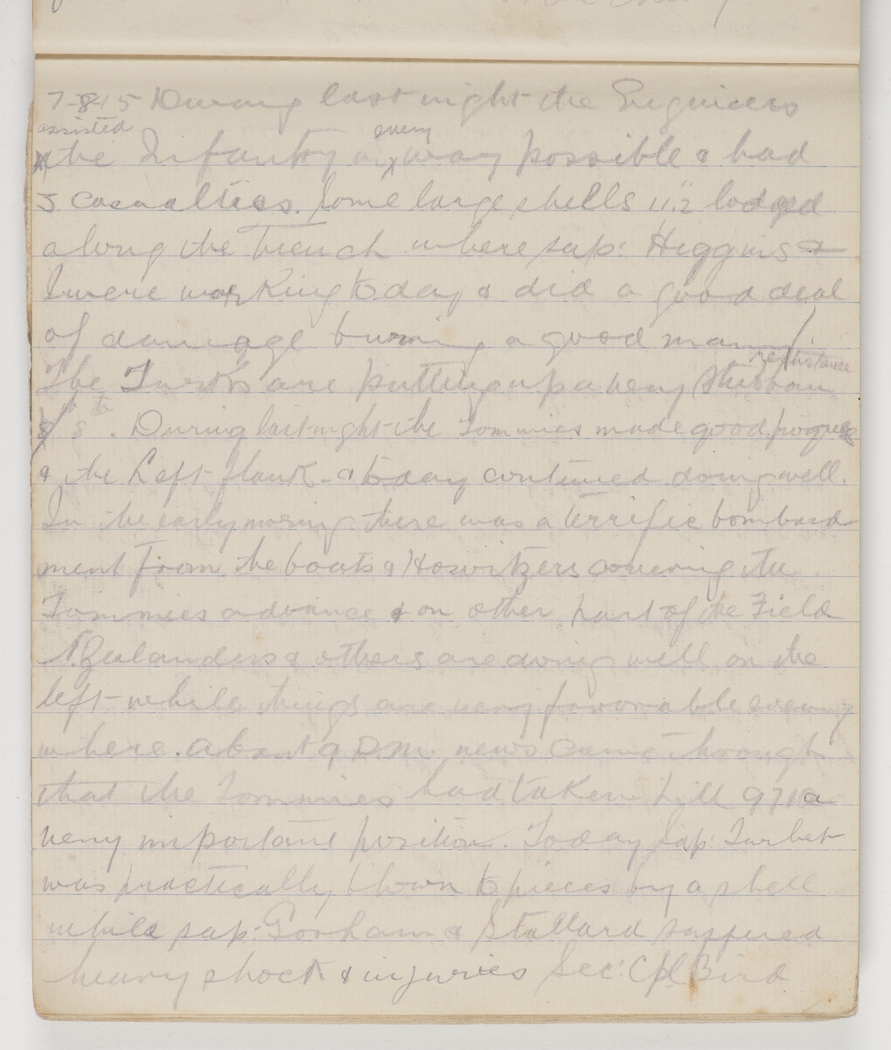 7-8-15 During last night the Engineers
assisted
the Infantry in every way possible & had
5 casualties. Some large shells 11.2 lodged
along the trench where sap: Higgins &
I were working today & did a good deal
of damage burning a good many
The Turks are putting up a very stubborn resistance
8th. During last night the Tommies made good progress
& the Left flank - & today continued doing well.
In the early moring there was a terrific bombard
ment from the boats & Howitzers covering the
Tommies advance & on other part of the Field
N. Zealanders & others are doing well on the
left while things are very favorable every
where. About 9 P.M. news came through
that the Tommies had taken hill 971 a
very important position. Today Sap: Turbet
was practically blown to pieces by a shell
while sap: Gorham & Stallard suffered
heavy shock & injuries Sec: Cpl Bird